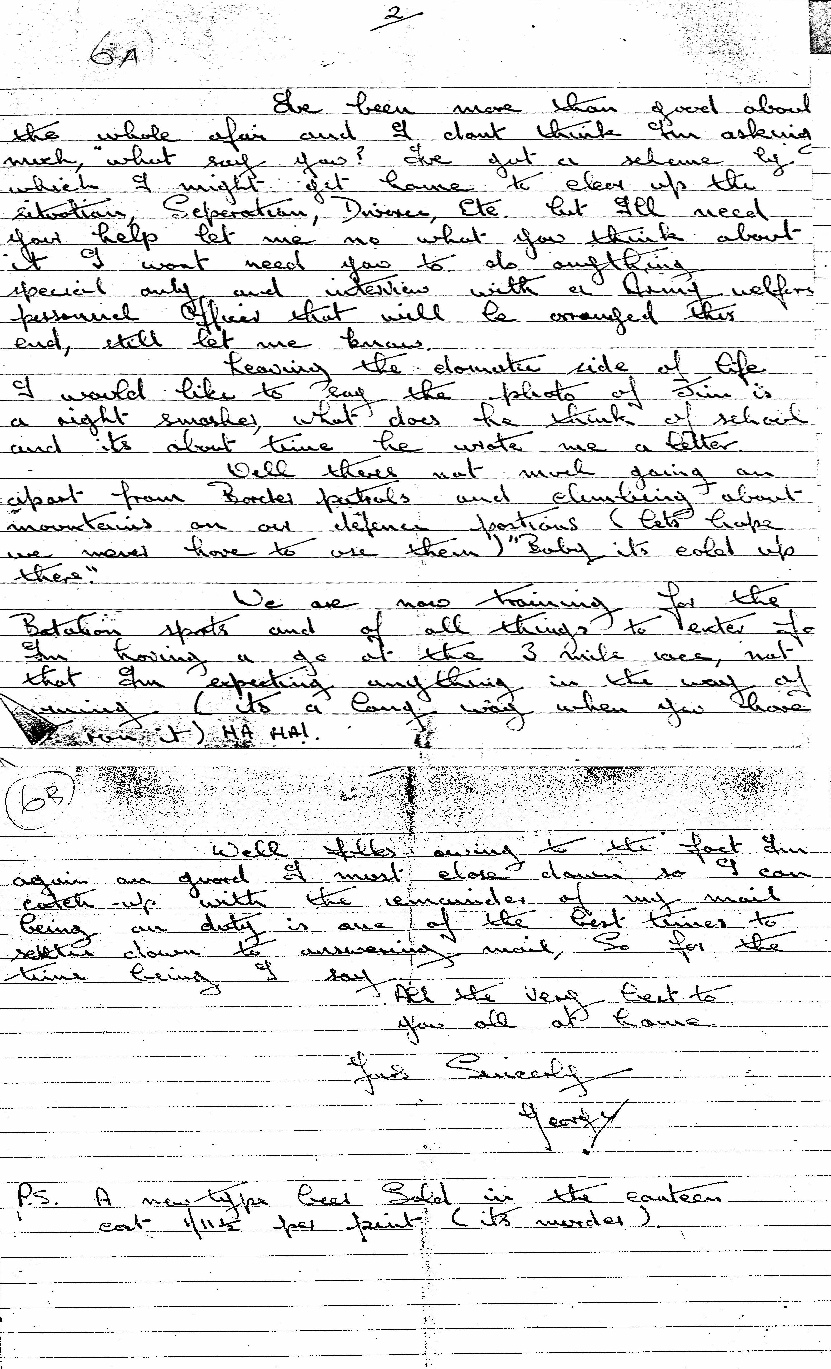 2
6A
Ive been more than good about
the whole afair and I dont think Im asking
much, "what say you? Ive got a scheme by
which I might get home to clear up the
situation, Seperation, Divorce, Etc. but I'll need
your help let me no what you think about
it I wont need you to do anything
special only and interview with a Army welfare
personnel Officer that will be arranged this
end, still let me know.
Leaving the domatic side of life
I would like to say the photo of Jim is
a right smasher, what does he think of school
and its about time he wrote me a letter.
Well theres not much going on
apart from Border patrols and climbing about
mountains on our defence postions (lets hope
we never have to use them) "Baby its cold up
there."
We are now training for the
Batalion spots and of all things to enter for
Im having a go at the 3 mile race, not
that Im expecting anything in the way of
winning. (its a long way when you have
run it) HA HA!.
6B
Well folks owing to the fact Im
again on guard I must close down so I can
catch-up with the remainder of my mail
being on duty is one of the best times to
settle down to answering mail, So for the
time being I say
All the very best to
you all at home
Yours Sincerly
George
P.S. A new type beer Sold in the canteen
cost 1/11½ per print (its murder).